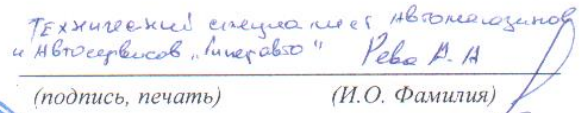 Технический специалист Автомагазинов
и Автосервисов „Гиперавто" Рева А. А
(подпись, печать) (И.О. Фамилия)